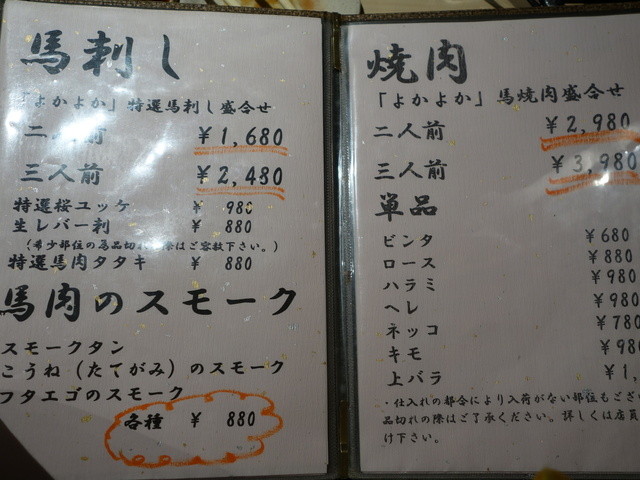 馬刺し
「よかよか」特選馬刺し盛合せ
二人前 ¥1,680
三人前 ¥2,480
特選桜ユッケ ¥ 980
生レバー刺 ¥ 880
(希少部位の為品切れの際はご容赦下さい。)
特選馬肉タタキ ¥ 880
馬肉のスモーク
スモークタン
こうね(たてがみ)のスモーク
フタエゴのスモーク
各種 ¥ 880
焼肉
「よかよか」馬焼肉盛合せ
二人前 ¥2,980
三人前 ¥3,980
単品
ビンタ ¥680
ロース ¥880
ハラミ ¥980
ヘレ ¥980
ネッコ ¥780
キモ ¥980
上バラ ¥1,
・仕入れの都合により入荷がない部位もござ
品切れの際はご了承ください。詳しくは店員
け下さい。